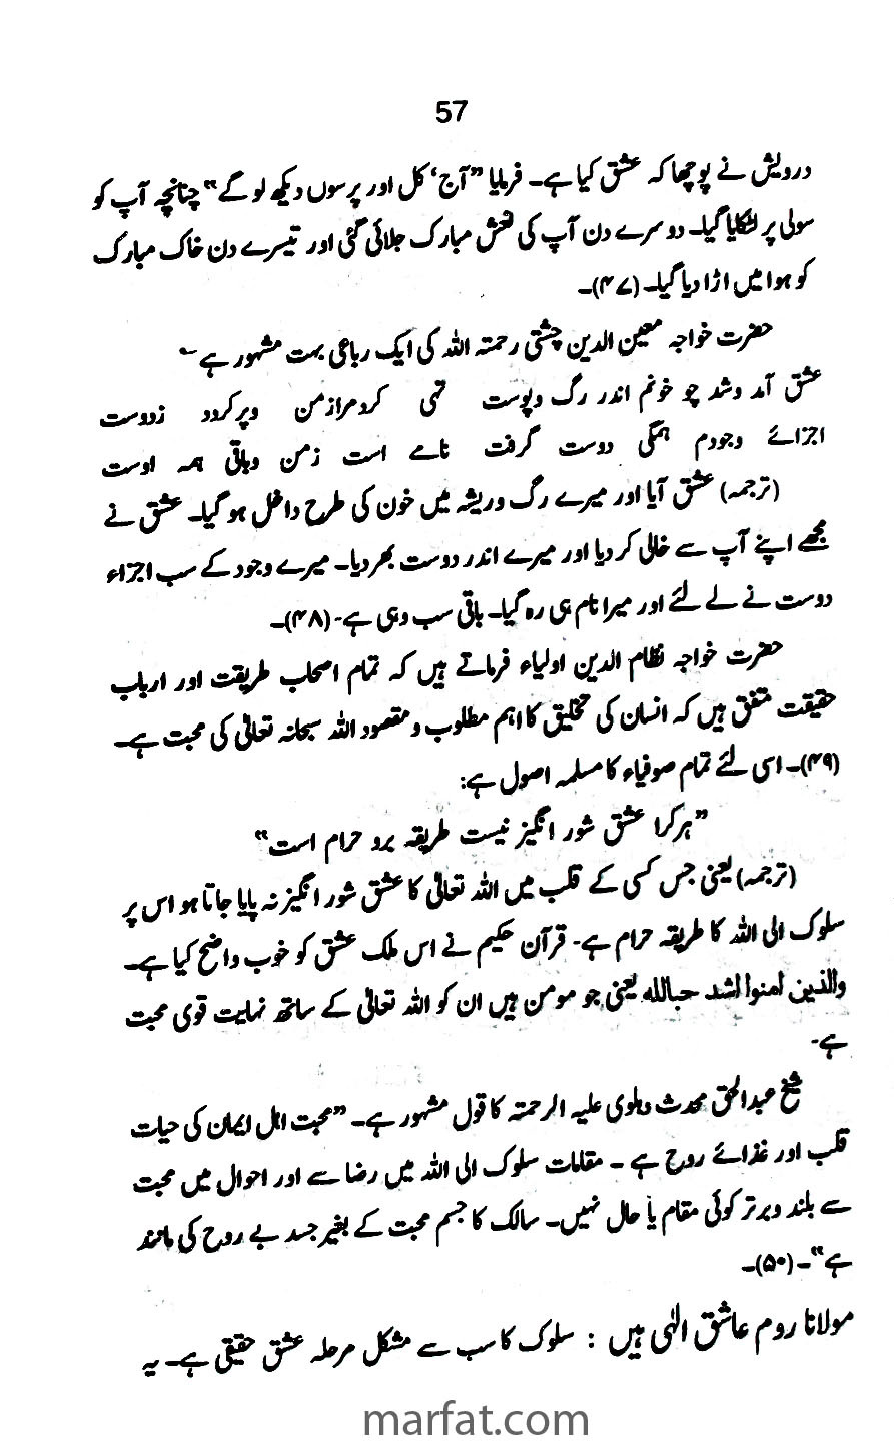 57
درویش نے پوچھا کہ عشق کیا ہے۔ فرمایا ”آج‘ کل اور پرسوں دیکھ لو گے“ چنانچہ آپ کو
سولی پر لٹکایا گیا۔ دوسرے دن آپ کی نعش مبارک جلائی گئی اور تیسرے دن خاک مبارک
کو ہوا میں اڑا دیا گیا۔ (۴۷)۔
حضرت خواجہ معین الدین چشتی رحمتہ اللہ کی ایک رباعی بہت مشہور ہے ؎
عشق آمد وشد چو خونم اندر رگ وپوست تہی کردمرازمن وپرکردد زدوست
اجزائے وجودم ہمگی دوست گرفت نامے است زمن وباقی ہمہ اوست
(ترجمہ) عشق آیا اور میرے رگ وریشہ میں خون کی طرح داخل ہو گیا۔ عشق نے
مجھے اپنے آپ سے خالی کر دیا اور میرے اندر دوست بھر دیا۔ میرے وجود کے سب اجزاء
دوست نے لے لئے اور میرا نام ہی رہ گیا۔ باقی سب وہی ہے۔ (۴۸)۔
حضرت خواجہ نظام الدین اولیاء فرماتے ہیں کہ تمام اصحاب طریقت اور ارباب
حقیقت متفق ہیں کہ انسان کی تخلیق کا اہم مطلوب و مقصود اللہ سبحانہ تعالیٰ کی محبت ہے۔
(۴۹)۔ اسی لئے تمام صوفیاء کا مسلمہ اصول ہے:
”ہرکرا عشق شور انگیز نیست طریقہ برو حرام است“
(ترجمہ) یعنی جس کسی کے قلب میں اللہ تعالیٰ کا عشق شور انگیز نہ پایا جاتا ہو اس پر
سلوک الی اللہ کا طریقہ حرام ہے۔ قرآن حکیم نے اس ملک عشق کو خوب واضح کیا ہے۔
والذین امنوا اشد حباللہ یعنی جو مومن ہیں ان کو اللہ تعالیٰ کے ساتھ نہایت قوی محبت
ہے۔
شیخ عبدالحق محدث دہلوی علیہ الرحمتہ کا قول مشہور ہے۔ ”محبت اہل ایمان کی حیات
قلب اور غذائے روح ہے ۔ مقامات سلوک الی اللہ میں رضا سے اور احوال میں محبت
سے بلند وبرتر کوئی مقام یا حال نہیں۔ سالک کا جسم محبت کے بغیر جسد بے روح کی مانند
ہے“۔ (۵۰)۔
مولانا روم عاشق الٰہی ہیں : سلوک کا سب سے مشکل مرحلہ عشق حقیقی ہے۔ یہ
marfat.com